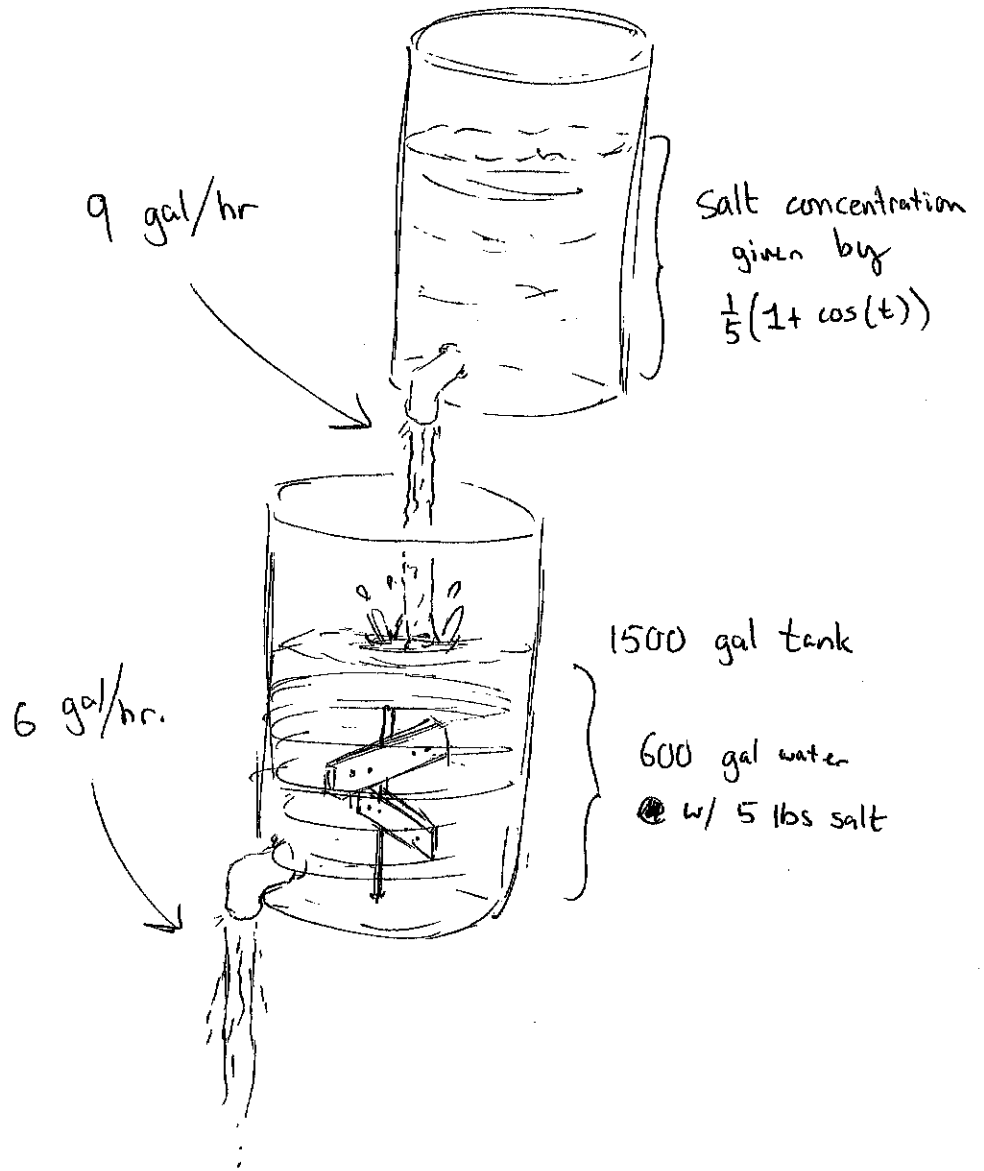 9 gal/hr
Salt concentration
given by
1/5(1+ cos(t))
1500 gal tank
6 gal/hr.
600 gal water
w/ 5 lbs salt